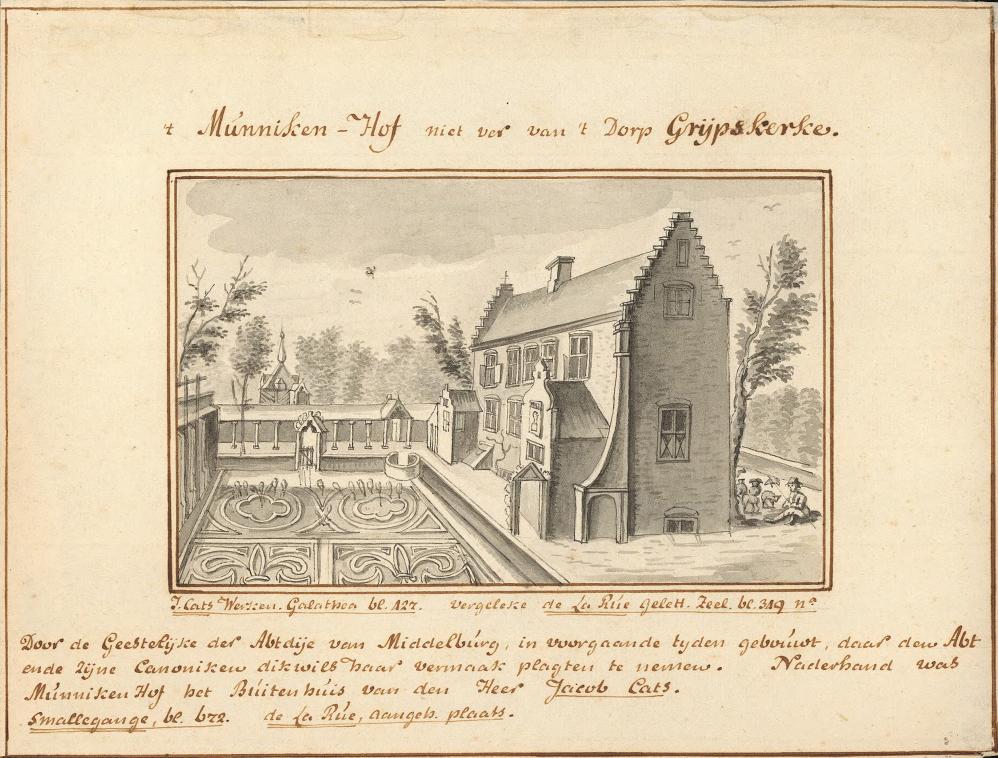 't Múnniken-Hof niet ver van 't Dorp Grijpskerke.
J. Cats Werken. Galathea bl. 127. vergeleke de La Rúe Gelett. Zeel. bl. 349 nᵃ
Door de Geestelijke der Abtdije van Middelbúrg, in voorgaande tyden geboúwt, daar den Abt
ende zijne Canoniken dikwils haar vermaak plagten te nemen. Naderhand was
Múnniken Hof het Búitenhúis van den Heer Jacob Cats.
Smallegange, bl. 672. de La Rúe, aangeh. plaats.